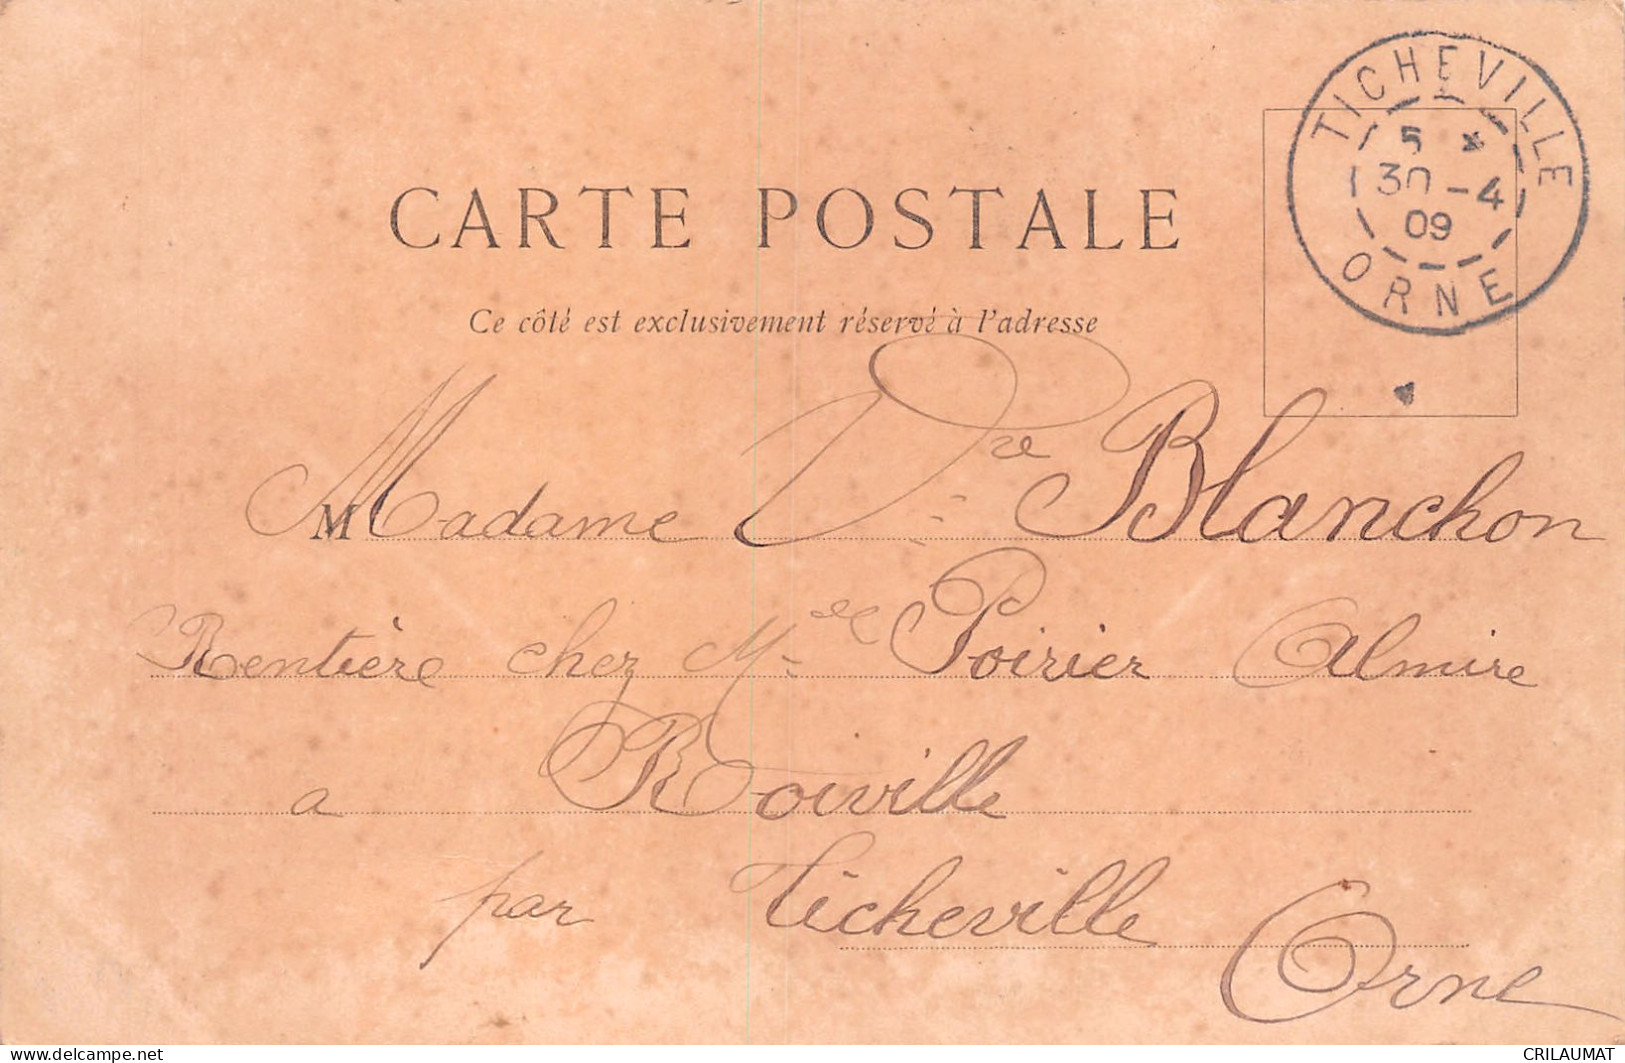 TICHEVILLE
5 *
30 -4
09
ORNE
CARTE POSTALE
Ce côté est exclusivement réservé à l'adresse
M Madame Vve Blanchon
Rentière chez Mme Poirier Almire
a Roiville
par Ticheville
Orne
www.delcampe.net
CRILAUMAT